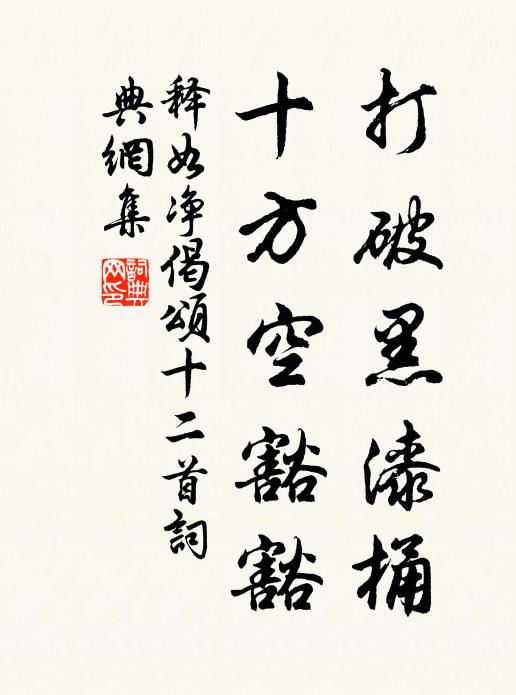 打破黑漆桶
十方空豁豁
释如净偈颂十二首詞
典網集
詞典
网印